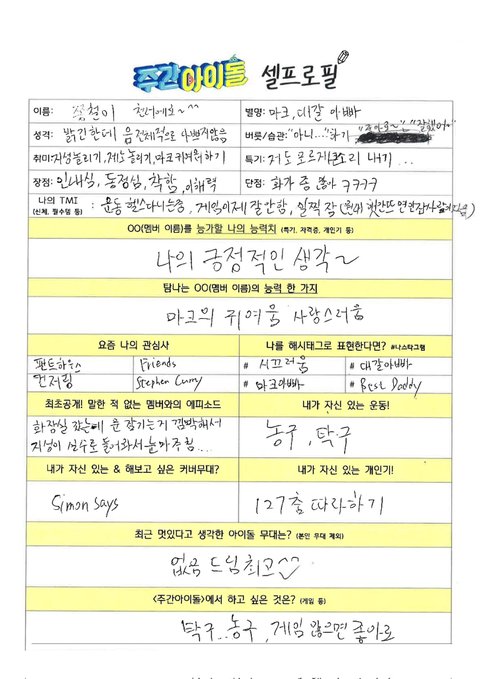 주간아이돌 셀프로필
이름: 정천이 천러에요~^^ 별명: 마크, 대갈 아빠
성격: 밝긴한데 음 전체적으로 나쁘지않음 버릇/습관: "아니..."하기
취미: 지성놀리기, 제노놀리기, 마크키워하기 특기: 저도모르게 소리 내기...
장점: 인내심, 동정심, 착함, 이해력 단점: 화가 좀 많아 ㅋㅋㅋㅋ
나의 TMI
(신체, 필수템 등) : 운동 헬스다니는중, 게임이제 잘안함, 일찍 잠
OO(멤버 이름)를 능가할 나의 능력치 (특기, 자격증, 개인기 등)
나의 긍정적인 생각~
탐나는 OO(멤버 이름)의 능력 한 가지
마크의 귀여움 사랑스러움
요즘 나의 관심사 나를 해시태그로 표현한다면? #나스타그램
펜트하우스 Friends # 시끄러움 # 대갈아빠
런저핑 Stephen Curry # 마크아빠 # Best Daddy
최초공개! 말한 적 없는 멤버와의 에피소드 내가 자신 있는 운동!
화장실 갔는데 문 잠기는거 깜박해서
지성이 실수로 들어와서 눈마주침... 농구, 탁구
내가 자신 있는 & 해보고 싶은 커버무대? 내가 자신 있는 개인기!
Simon says 127춤 따라하기
최근 멋있다고 생각한 아이돌 무대는? (본인 무대 제외)
없음 드림최고^^
<주간아이돌>에서 하고 싶은 것은? (게임 등)
탁구..농구, 게임 많으면 좋아요